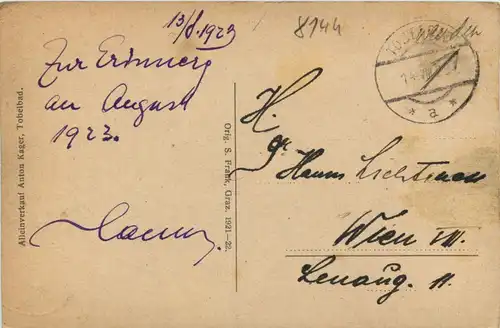 13/8.1923
8144
Zur Erinnerg
an August
1923.
Alleinverkauf Anton Kager, Tobelbad.
Orig. S. Frank, Graz, 1921–22.
* a *
H.
Hanns
Wien VIII.
Lenaug. 11.